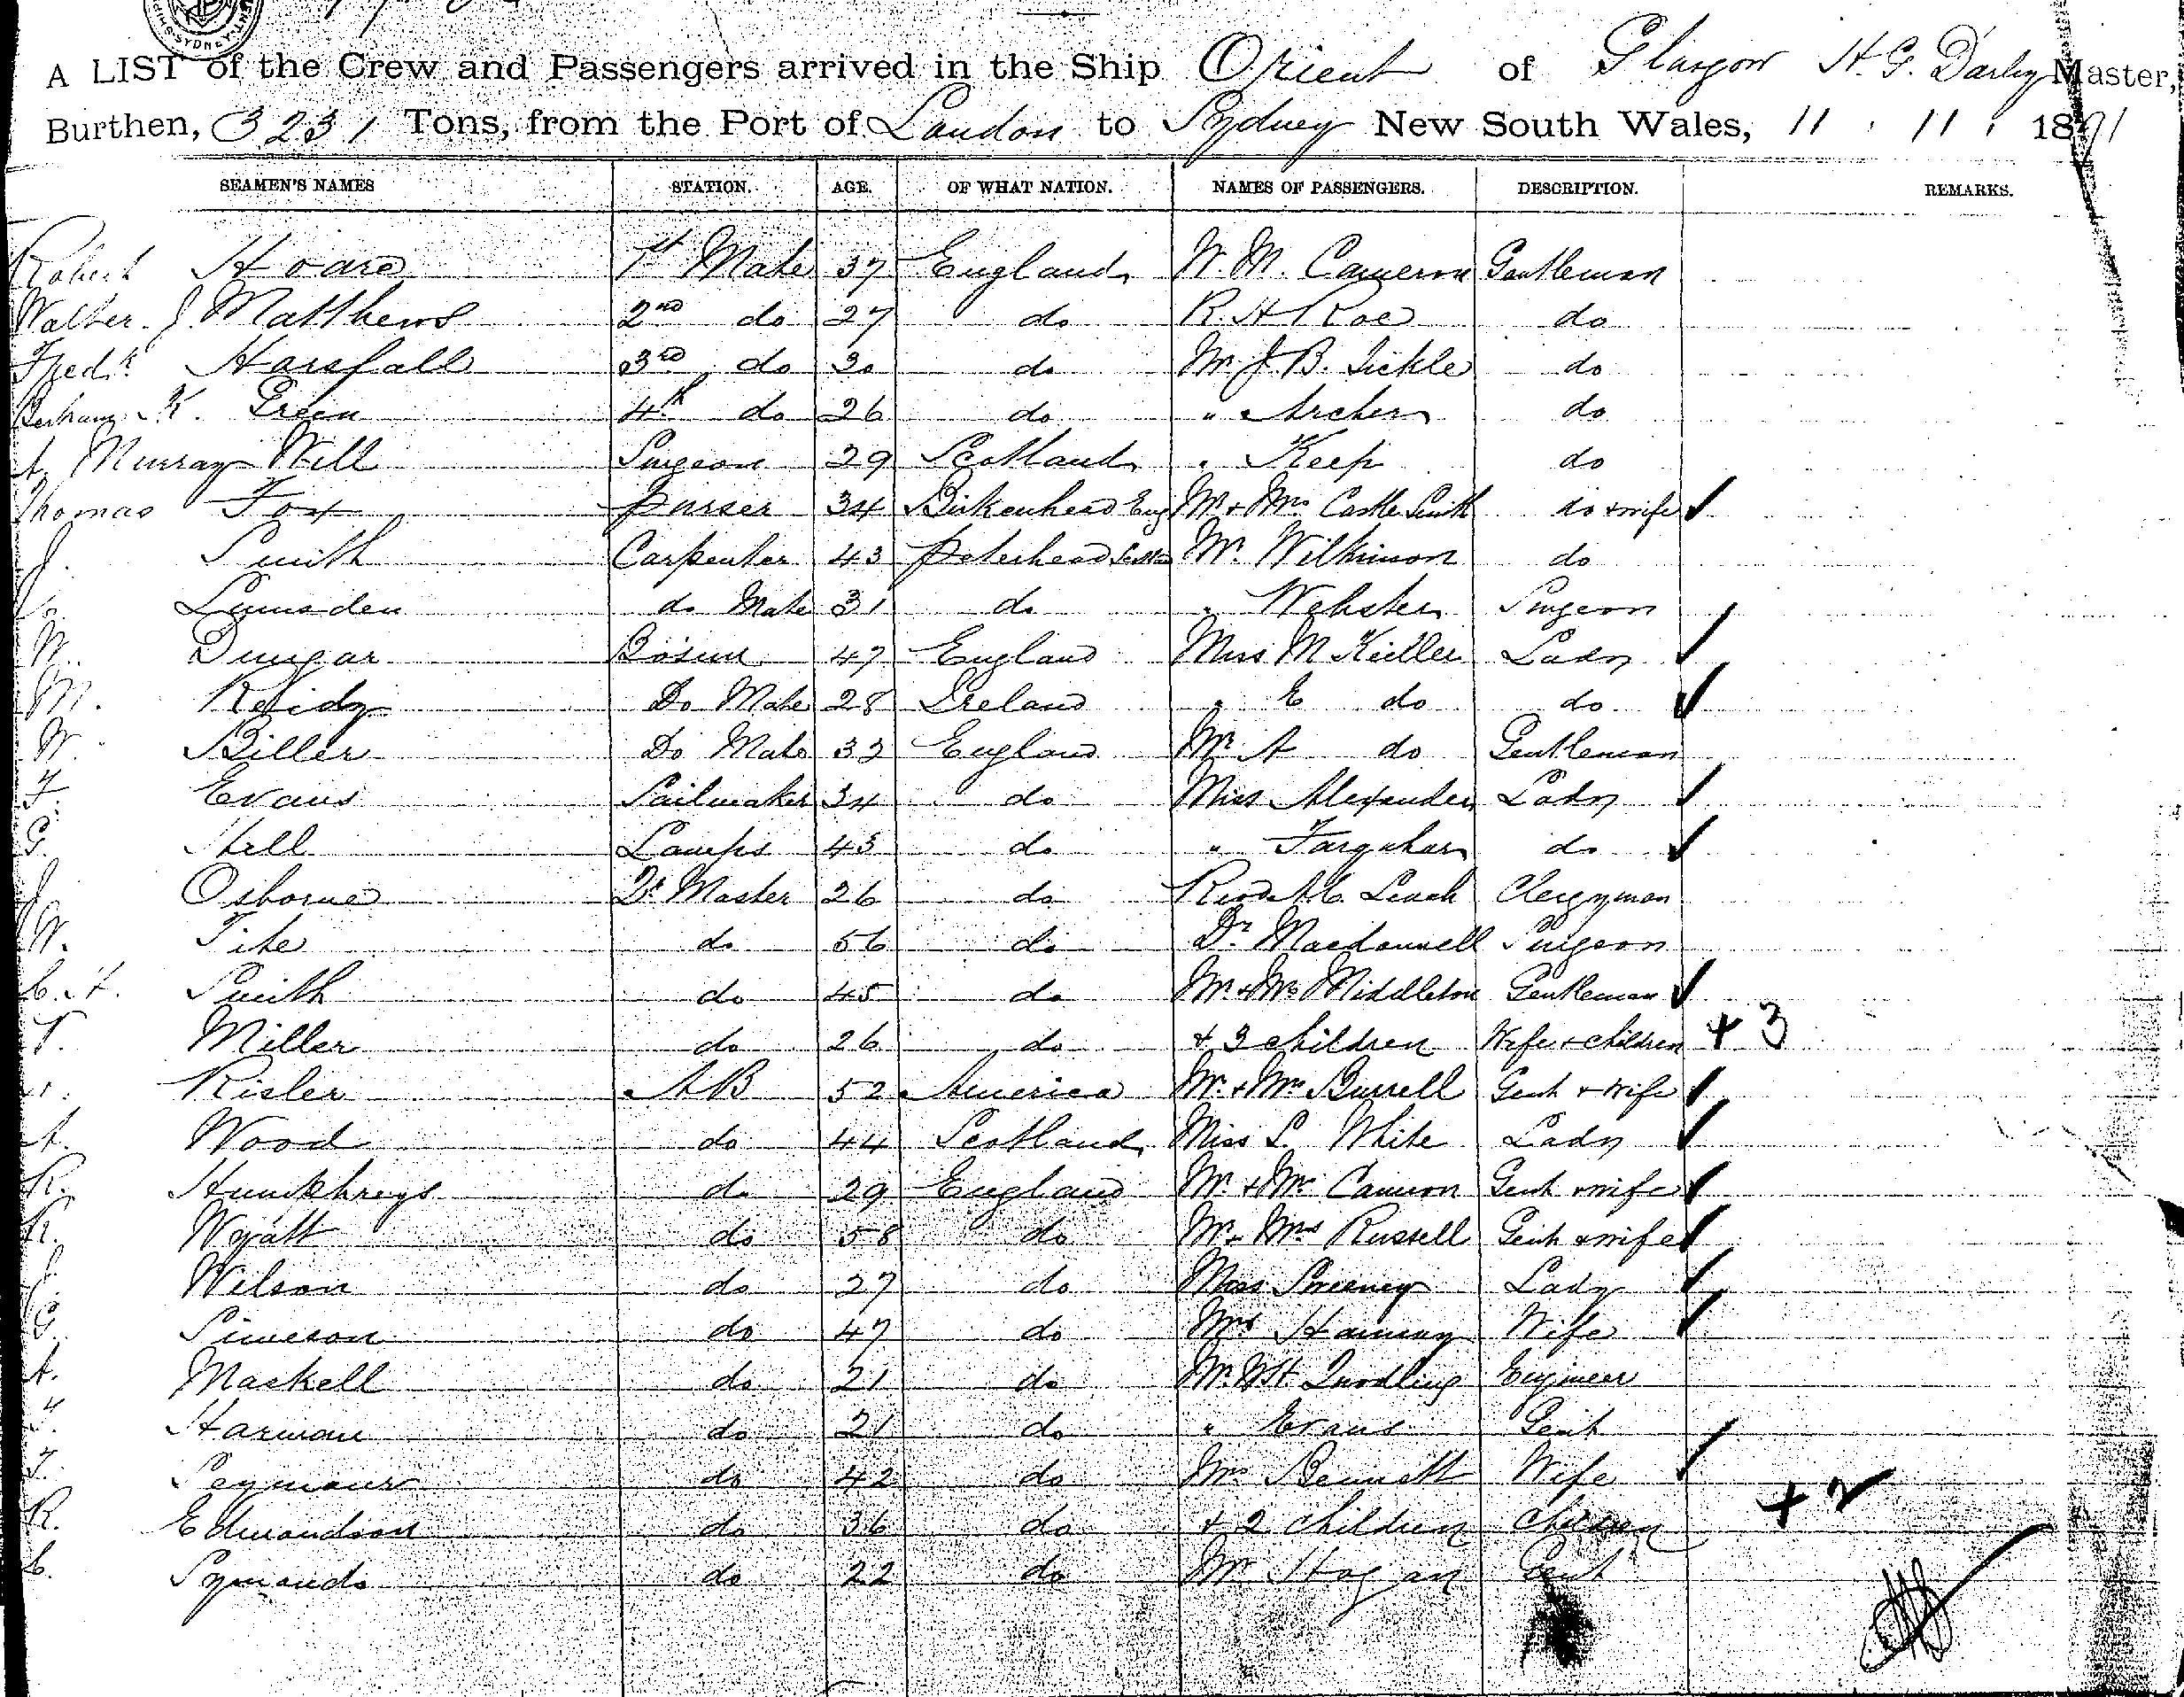 SYDNEY
A LIST of the Crew and Passengers arrived in the Ship Orient of Glasgow H. G. Darby Master,
Burthen, 3231 Tons, from the Port of London to Sydney New South Wales, 11 . 11 . 1891
SEAMEN'S NAMES STATION. AGE. OF WHAT NATION. NAMES OF PASSENGERS. DESCRIPTION. REMARKS.
Robert Hoare 1st Mate 37 England W. M. Cameron Gentleman
Walter J. Matthews 2nd do 27 do R. H Roe do
Fredk Horsfall 3rd do 30 do Mr J. B. Sickle do
Bertram K. Green 4th do 26 do " Archer do
A. Murray Will Surgeon 29 Scotland " Keep do
Thomas Fox Purser 34 Birkenhead Eng Mr + Mrs Castle Smith do + wife
J. Smith Carpenter 43 Peterhead Mr. Wilkinson do
Lumsden do Mate 31 do " Webster Surgeon
W. Dungar Bosun 47 England Miss M Keiller Lady
M. Reidy Do Mate 28 Ireland " E do do
W. Biller Do Mate 32 England Mr A do Gentleman
F. Evans Sailmaker 34 do Miss Alexander Lady
G. Hell Lamps 43 do " Farquhar do
J. Osborne Qr Master 26 do Revd A. C. Leach Clergyman
W. Tite do 56 do Dr Macdonnell Surgeon
C. A. Smith do 45 do Mr + Mrs Middleton Gentleman
T. Miller do 26 do + 3 children Wife + children + 3
Risler AB 52 America Mr. + Mrs Burrell Gent + Wife
A. Wood do 44 Scotland Miss L. White Lady
R. Humphreys do 29 England Mr. + Mrs Cameron Gent + wife
R. Wyatt do 58 do Mr + Mrs Russell Gent + wife
J. Wilson do 27 do Miss Sweeney Lady
G. Simeson do 47 do Mrs Hannay Wife
A. Maskell do 21 do Mr. W H Quodling Engineer
F. Harman do 21 do " Evans Gent
F. Seymour do 42 do Mrs Bennett Wife
R. Edmondson do 36 do + 2 children Children + 2
C. Symonds do 22 do Mr Hogan Gent